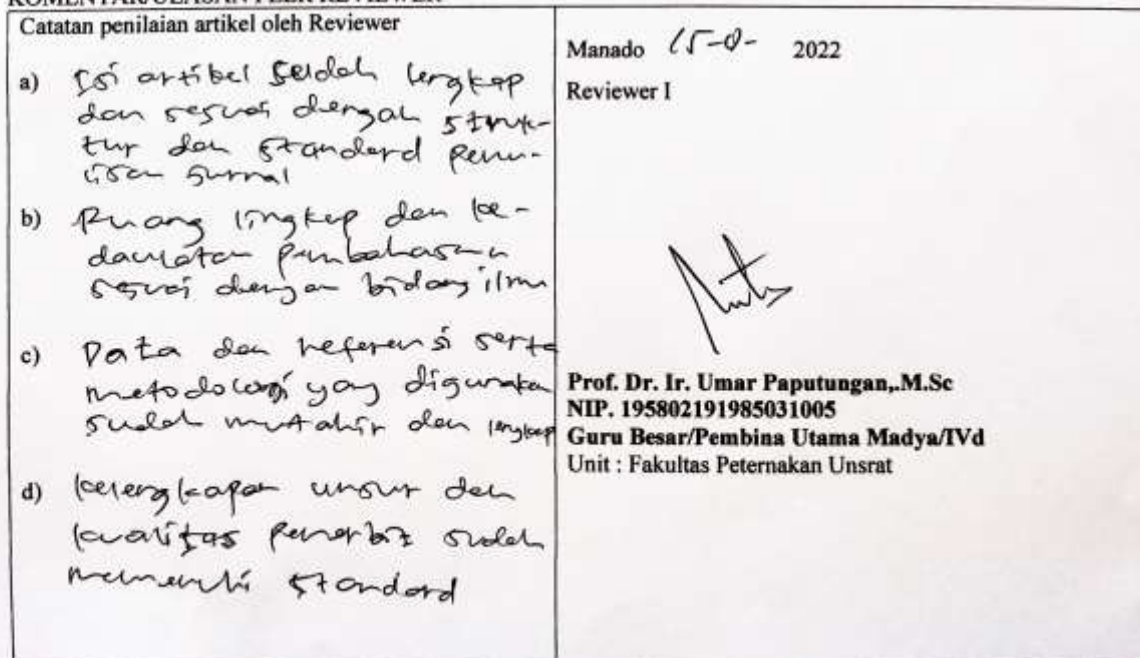 KOMENTAR/ULASAN PEER REVIEWER
Catatan penilaian artikel oleh Reviewer
a) Isi artikel sudah lengkap
dan sesuai dengan struk-
tur dan standard penu-
lisan jurnal
b) Ruang lingkup dan ke-
dalaman pembahasan
sesuai dengan bidang ilmu
c) Data dan referensi serta
metodologi yang digunakan
sudah mutahir dan lengkap
d) kelengkapan unsur dan
kualitas penerbit sudah
memenuhi standard
Manado 15- 2022
Reviewer I
Prof. Dr. Ir. Umar Paputungan,.M.Sc
NIP. 195802191985031005
Guru Besar/Pembina Utama Madya/IVd
Unit : Fakultas Peternakan Unsrat